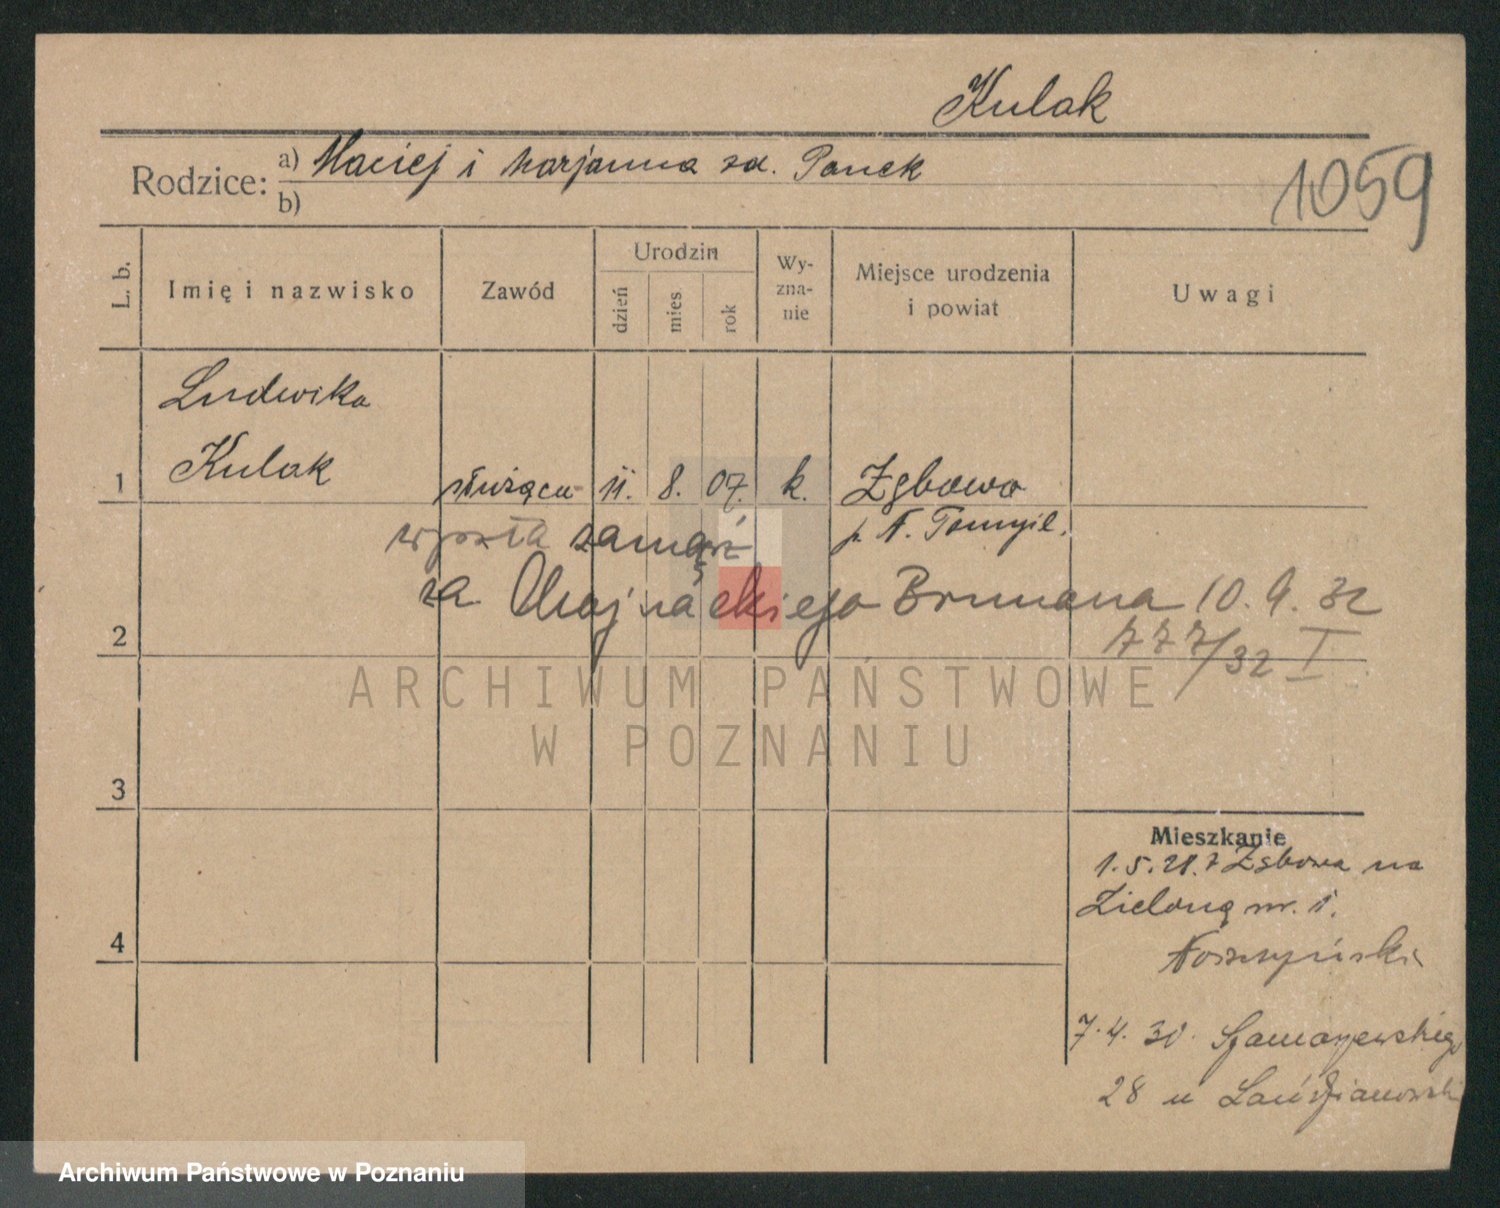 Kulak
Rodzice: a) Maciej i Marjanna zd. Panek
b)
1059
L. b.
Imię i nazwisko
Zawód
Urodzin
dzień
mies
rok
Wy-
zna-
nie
Miejsce urodzenia
i powiat
Uwagi
Ludwika
1 Kulak służąca 11. 8. 07. k. Zgbowo
p. N. Tomyśl.
wyszła zamąż
za Chojnackiego Brunona 10. 9. 32
777/32 I
2
ARCHIWUM PAŃSTWOWE
W POZNANIU
3
Mieszkanie
1.5.28. z Zgbowa na
Zieloną nr. 1.
4
7.4.30. Szamarzewskiego
28 u
Archiwum Państwowe w Poznaniu